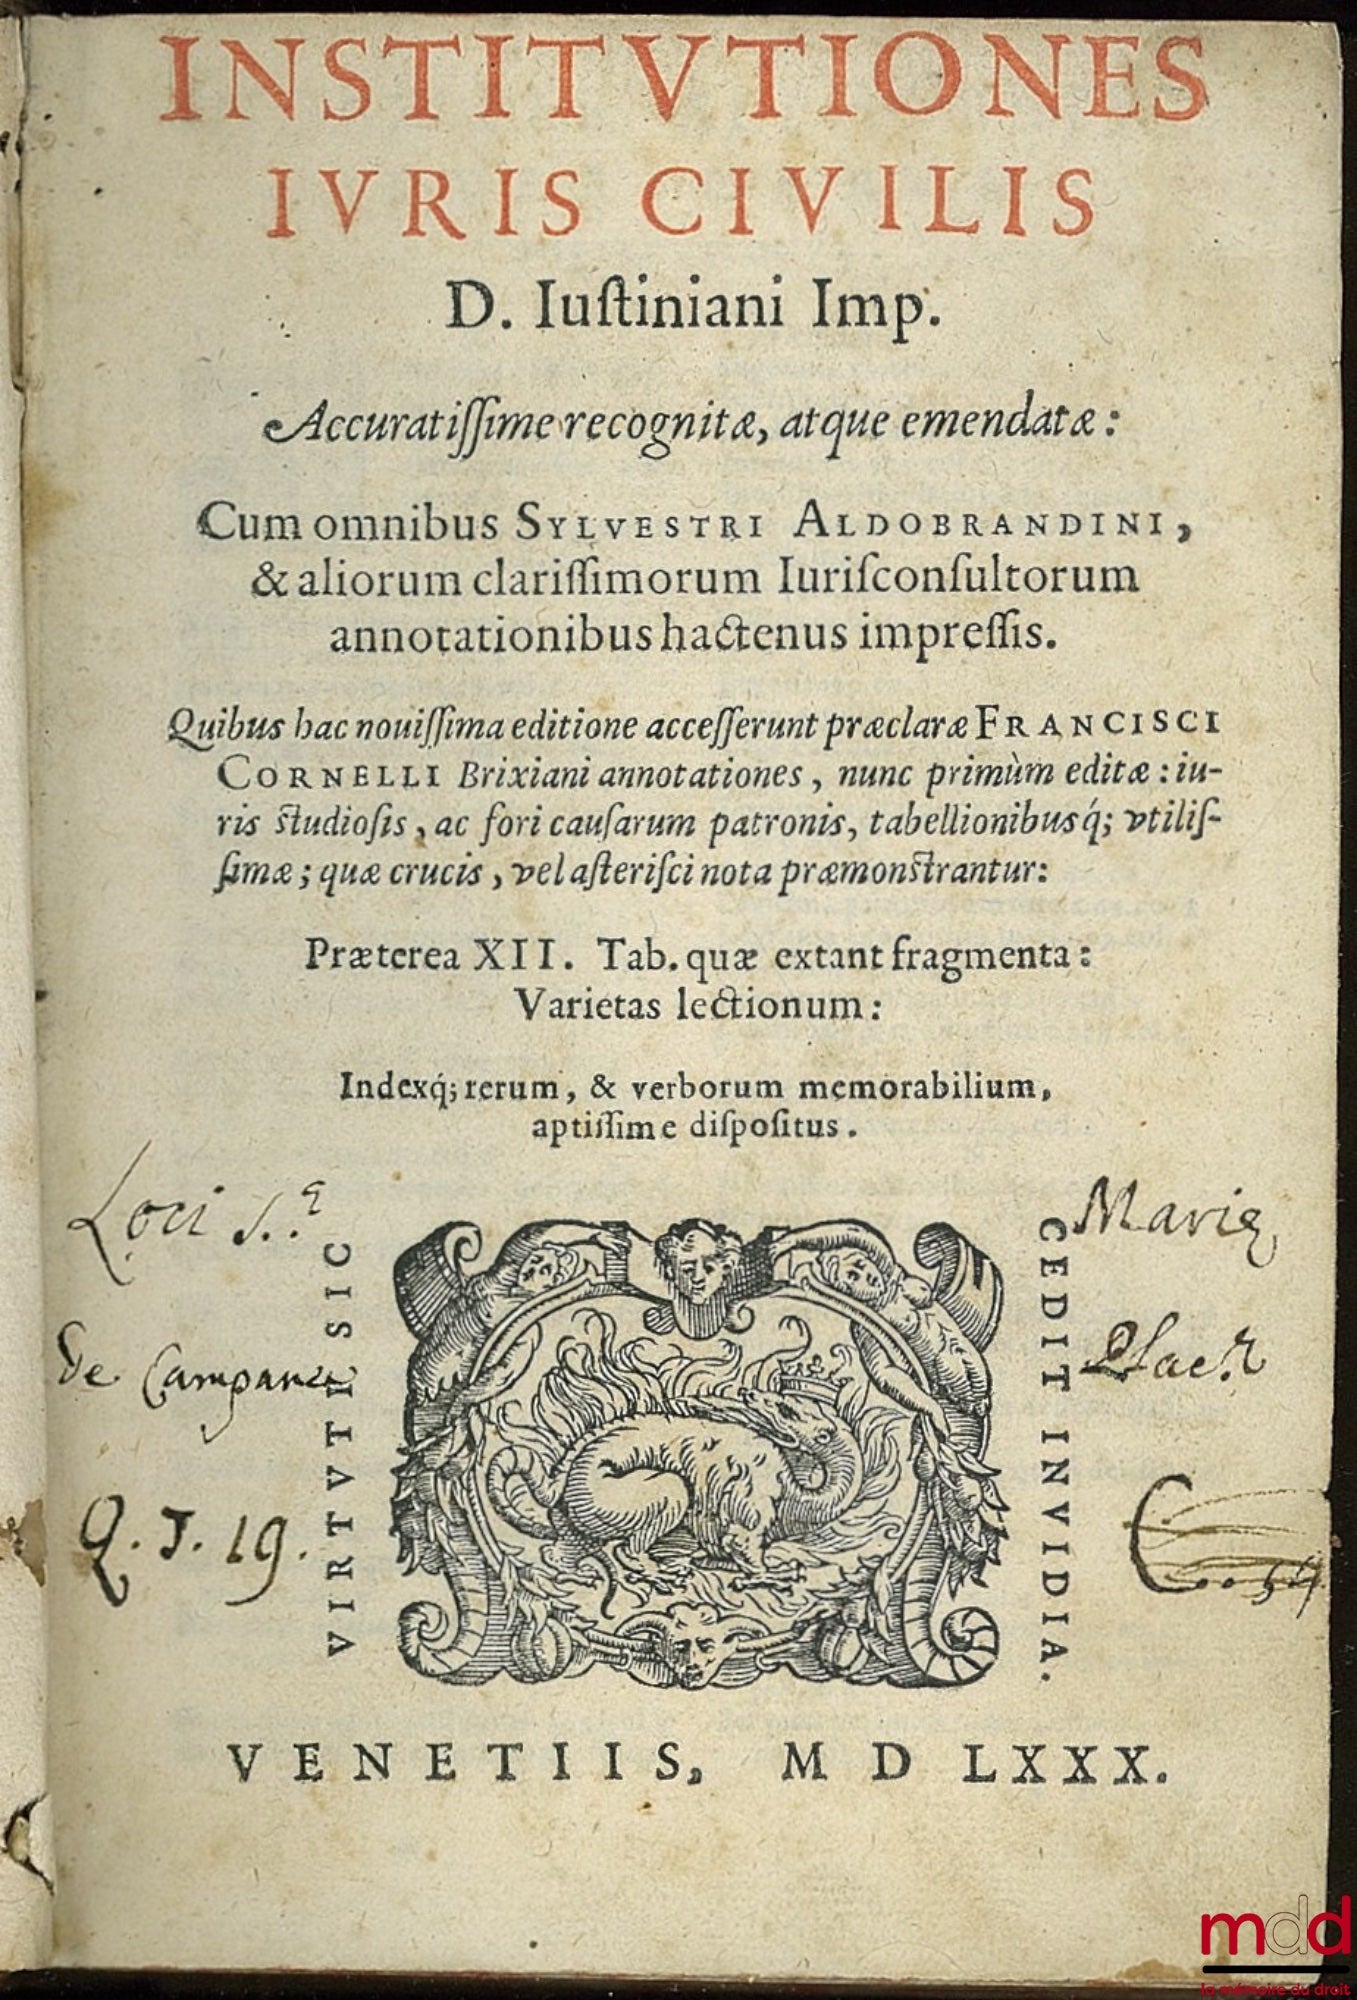 INSTITVTIONES
IVRIS CIVILIS
D. Iuſtiniani Imp.
Accuratiſſime recognitæ, atque emendatæ:
Cum omnibus SYLVESTRI ALDOBRANDINI,
& aliorum clariſſimorum Iuriſconſultorum
annotationibus hactenus impreſſis.
Quibus hac nouiſſima editione acceſſerunt præclaræ FRANCISCI
CORNELLI Brixiani annotationes, nunc primùm editæ: iu-
ris ſtudioſis, ac fori cauſarum patronis, tabellionibusq́; vtiliſ-
ſimæ; quæ crucis, vel aſteriſci nota præmonſtrantur:
Præterea XII. Tab. quæ extant fragmenta:
Varietas lectionum:
Indexq́; rerum, & verborum memorabilium,
aptiſſime diſpoſitus.
Loci S.
Mariæ
de Campane
Plac.
Q. J. 19.
C..54
VIRTVTI SIC
CEDIT INVIDIA.
VENETIIS, M D LXXX.
mdd
la mémoire du droit